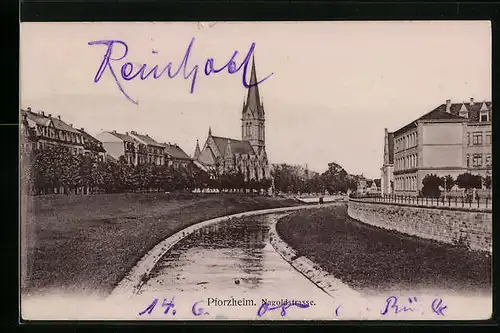 Reinhold
Pforzheim. Nagoldstrasse.
14. 6. 08